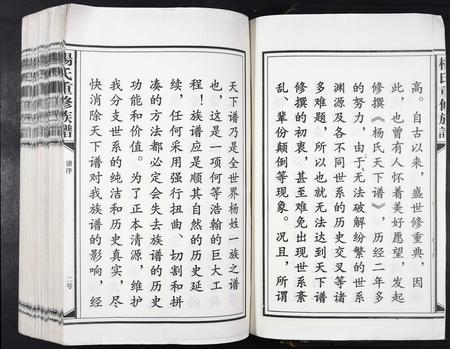 高。自古以来，盛世修重典，因
此，也曾有人怀着美好愿望，发起
修撰《杨氏天下谱》，历经二年多
的努力，由于无法破解纷繁的世系
渊源及各不同世系的历史交叉等诸
多难题，所以也就无法达到天下谱
修撰的初衷，甚至难免出现世系紊
乱、辈份颠倒等现象。况且，所谓
杨氏重修族谱
天下谱乃是全世界杨姓一族之谱
也，这是一项何等浩翰的巨大工
程！族谱应是顺其自然的历史延
续，任何采用强行扭曲、切割和拼
凑的方法都必定会失去族谱的历史
功能和价值。为了正本清源，维护
我分支世系的纯洁和历史真实，尽
快消除天下谱对我族谱的影响，经
杨氏重修族谱
谱序
二号